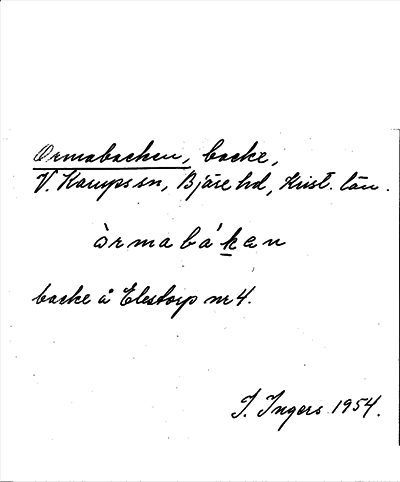 Ormabacken, backe,
V. Karups sn, Bjäre hd, Krist. län.
òrmabákan
backe å Elestorp nr 4.
I. Ingers 1954.